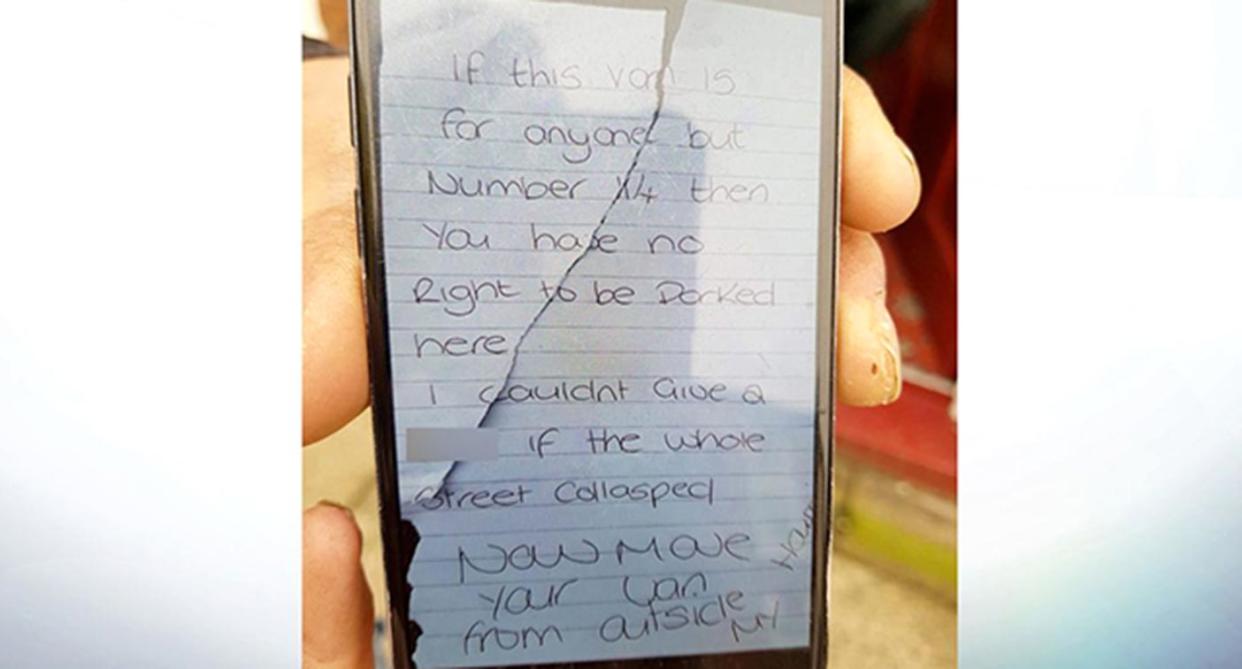 If this van is
for anyone but
Number 14 then
You have no
Right to be Parked
here
I couldnt Give a
if the whole
Street Collasped
Now Move
Your Van
from outside MY